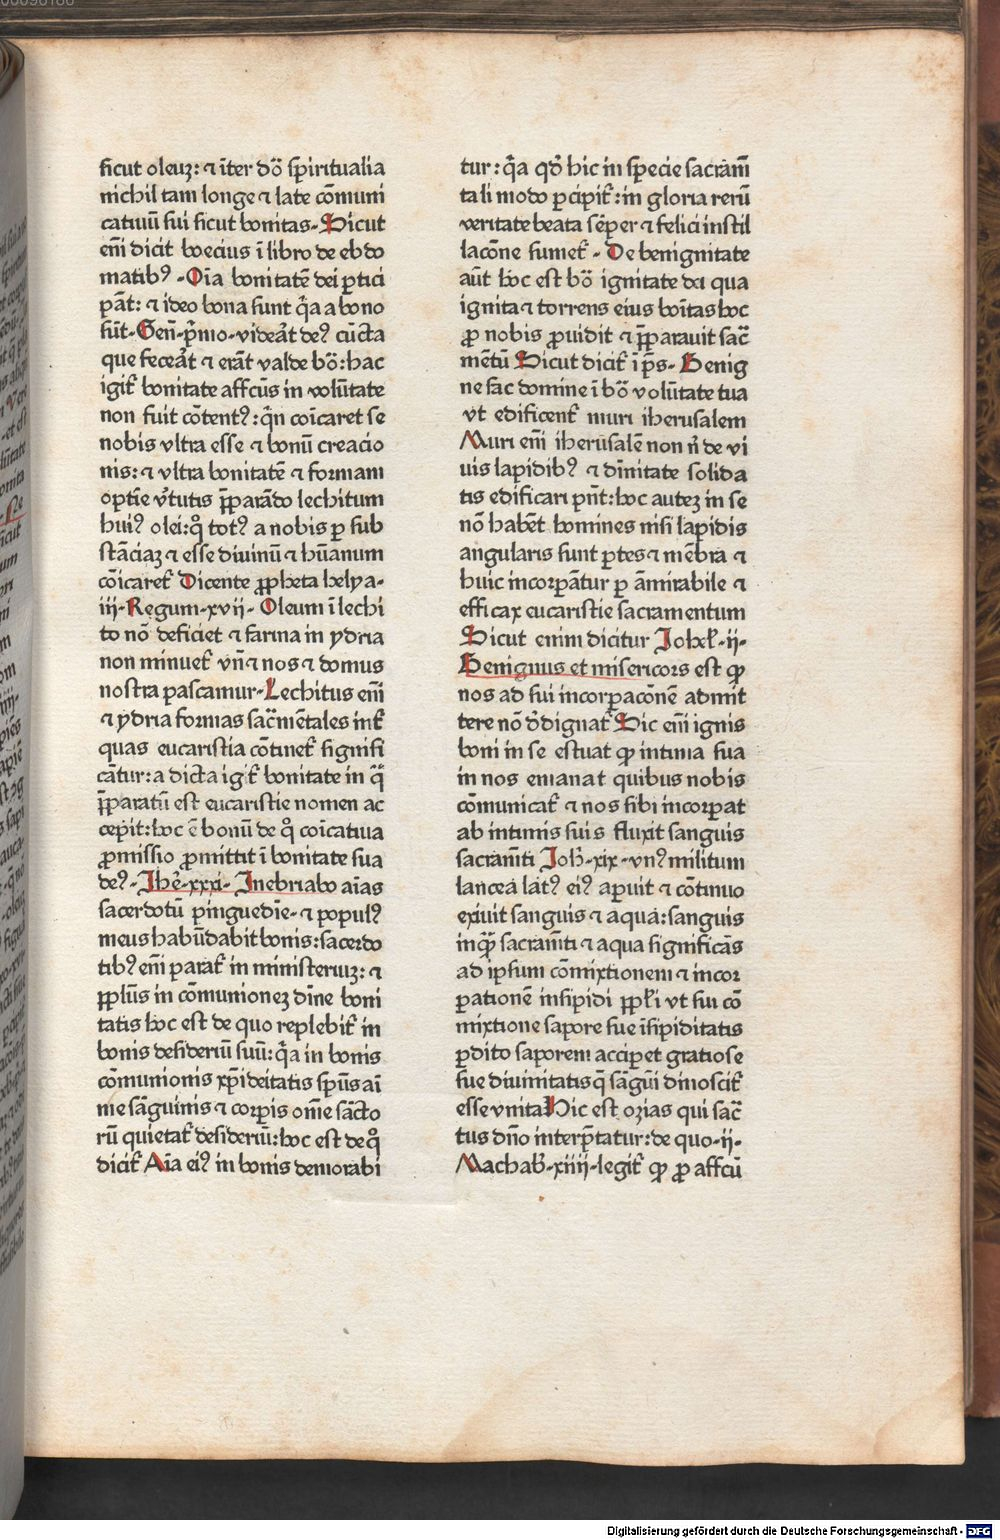 ſicut oleuz: ⁊ īter dō ſpiritualia
nichil tam longe ⁊ late cōmuni
catiuū ſui ſicut bonitas. Sicut
em̄ dicit boecius ī libro de ebdo
matibꝰ. Oīa bonitatē dei ꝑtici
pāt: ⁊ ideo bona ſunt q̄a a bono
ſūt. Geñ. p̄mo. videāt deꝰ cūcta
que feceāt ⁊ erāt valde bō: hac
igit̄ bonitate affcūs in volūtate
non fuit cōtentꝰ: qn̄ coīcaret ſe
nobis vltra eſſe ⁊ bonū creacio
nis: ⁊ vltra bonitatē ⁊ formam
optīe v̄tutis p̄parādo lechitum
huiꝰ olei: q̄ totꝰ a nobis ꝑ ſub
ſtāciaz ⁊ eſſe diuinū ⁊ hūanum
cōicaret̄ Dicente ꝓpheta helya.
iij. Regum. xvij. Oleum ī lechi
to nō deficiet ⁊ farina in ydria
non minuet̄ vn̄ ⁊ nos ⁊ domus
noſtra paſcamur. Lechitus em̄
⁊ ydria formas ſac̄mētales int̄
quas eucariſtia cōtinet̄ ſignifi
cātur: a dicta igit̄ bonitate in q̄
p̄paratū eſt eucariſtie nomen ac
cepit: hoc ē bonū de q̄ coīcatiua
ꝓmiſſio ꝓmittit ī bonitate ſua
deꝰ. Ihē. xxxi. Inebriabo aīas
ſacerdotū pinguedīe. ⁊ populꝰ
meus habūdabit bonis: ſacerdo
tibꝰ em̄ parat̄ in miniſteriuz: ⁊
pplūs in cōmunionez dīne boni
tatis hoc eſt de quo replebit̄ in
bonis deſideriū ſuū: q̄a in bonis
cōmunionis xp̄ideitatis ſpūs aī
me ſāguinis ⁊ corꝑis om̄e ſācto
rū quietat̄ deſideriū: hoc eſt de q̄
dicit̄ Aīa eiꝰ in bonis demorabi
tur: q̄a qd̄ hic in ſpecie ſacram̄
tali modo ꝑcipit̄: in gloria rerū
veritate beata ſēper ⁊ felici inſtil
lacōne ſumet̄. De benignitate
aūt hoc eſt bō ignitate dei qua
ignita ⁊ torrens eius boītas hoc
ꝓ nobis ꝓuidit ⁊ p̄parauit ſac̄
mētū Sicut dicit̄ ī pſ̄. Benig
ne fac domine ī bō volūtate tua
vt edificent̄ muri iheruſalem
Muri em̄ iheruſalē non n̄ de vi
uis lapidibꝰ ⁊ dīnitate ſolida
tis edificari pn̄t: hoc autez in ſe
nō habēt homines niſi lapidis
angularis ſunt ꝑtes ⁊ mēbra ⁊
huic incorꝑātur ꝑ āmirabile ⁊
efficax eucariſtie ſacramentum
Sicut enim dicitur Iohel̄. ij.
Benignus et miſericors eſt ꝙ
nos ad ſui incorꝑacōnē admit
tere nō d̄dignat̄ Sic em̄ ignis
boni in ſe eſtuat ꝙ intima ſua
in nos emanat quibus nobis
cōmunicat̄ ⁊ nos ſibi incorꝑat
ab intimis ſuis fluxit ſanguis
ſacram̄ti Joh̄. xix. vnꝰ militum
lancea latꝰ eiꝰ apuit ⁊ cōtinuo
exiuit ſanguis ⁊ aqua: ſanguis
inquā ſacram̄ti ⁊ aqua ſignificās
ad ipſum cōmixtionem ⁊ incor
ꝑationē inſipidi ppl̄i vt ſui cō
mixtione ſapore ſue īſipiditatis
ꝑdito ſaporem acciperet gratioſe
ſue diuinitatis q̄ ſāgūi dinoſcit̄
eſſe vnita Hic eſt ozias qui ſac̄
tus dn̄o interp̄tatur: de quo. ij.
Machab̄. xiiij. legit̄ ꝙ ꝓ affcū
Digitalisierung gefördert durch die Deutsche Forschungsgemeinschaft - DFG